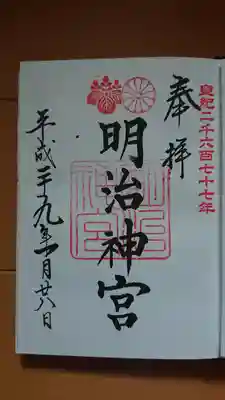 皇紀二千六百七十七年
奉拝
明治神宮
平成二十九年一月廿八日